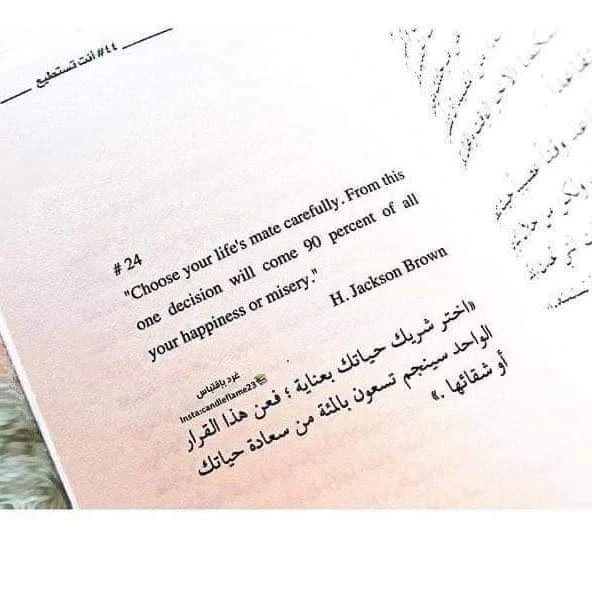 ٤٤# أنت تستطيع
# 24
"Choose your life's mate carefully. From this
one decision will come 90 percent of all
your happiness or misery."
H. Jackson Brown
غرد بإقتباس
Insta:candleflame23
«اختر شريك حياتك بعناية ؛ فعن هذا القرار
الواحد سينجم تسعون بالمئة من سعادة حياتك
أو شقائها .»